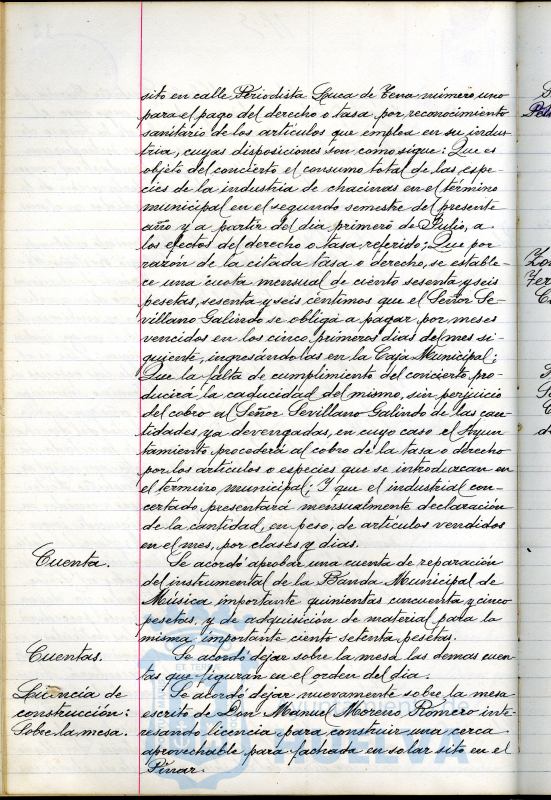 sito en calle Periodista Luca de Tena número uno
para el pago del derecho o tasa por reconocimiento
sanitario de los artículos que emplea en su indus-
tria, cuyas disposiciones son como sigue: Que es
objeto del concierto el consumo total de las espe-
cies de la industria de chacinas en el término
municipal en el segundo semestre del presente
año y a partir del dia primero de Julio, a
los efectos del derecho o tasa referido; Que por
razón de la citada tasa o derecho, se estable-
ce una cuota mensual de ciento sesenta y seis
pesetas, sesenta y seis céntimos que el Señor Se-
villano Galindo se obliga a pagar por meses
vencidos en los cinco primeros dias del mes si-
guiente, ingresándolas en la Caja Municipal;
Que la falta de cumplimiento del concierto pro-
ducirá la caducidad del mismo, sin perjuicio
del cobro al Señor Sevillano Galindo de las can-
tidades, ya devengadas, en cuyo caso el Ayun-
tamiento procederá al cobro de la tasa o derecho
por los artículos o especies que se introduzcan en
el término municipal; Y que el industrial con-
certado presentará mensualmente declaración
de la cantidad, en peso, de artículos vendidos
en el mes, por clases y dias.
Cuenta.
Se acordó aprobar una cuenta de reparación
del instrumental de la Banda Municipal de
Música importante quinientas cincuenta y cinco
pesetas y de adquisición de material para la
misma importante ciento setenta pesetas.
Cuentas.
Se acordó dejar sobre la mesa las demas cuen-
tas que figuran en el orden del dia.
Licencia de
construcción:
Sobre la mesa.
Se acordó dejar nuevamente sobre la mesa
escrito de Don Manuel Moreno Romero inte-
resando licencia para construir una cerca
aprovechable para fachada en solar sito en el
Pinar.
Ayuntamiento de
HUELVA